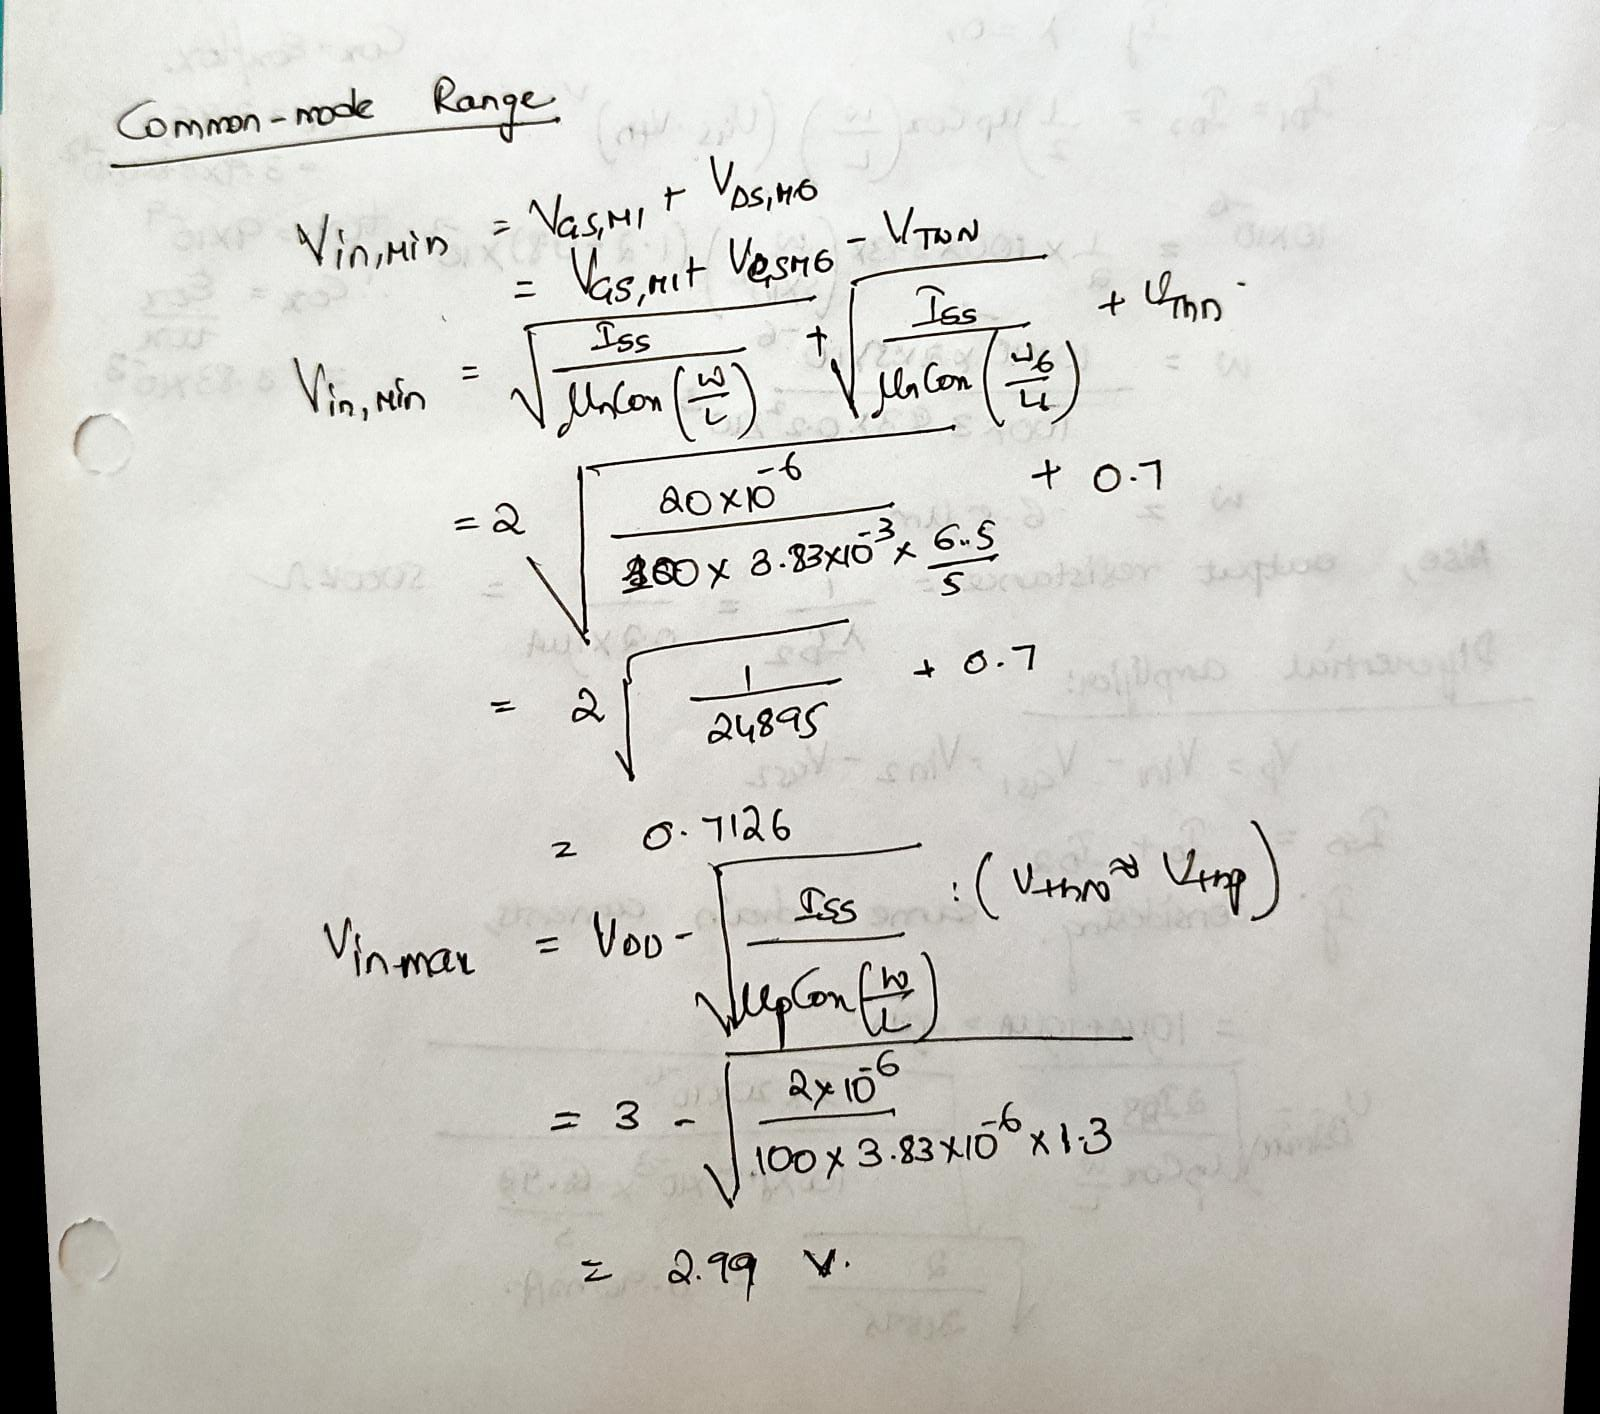 Common-mode Range
Vin,Min = VGS,M1 + VDS,M6
= VGS,M1 + VGSM6 - VTHN
Vin,Min = √(Iss / μnCox(W/L)) + √(Iss / μnCox(W6/L6)) + VThn
= 2 √(20×10^-6 / (100 × 3.83×10^-3 × 6.5/5)) + 0.7
= 2 √(1/24895) + 0.7
= 0.7126
Vinmax = VDD - √(Iss / μpCox(W/L)) : (Vthn ≈ Vthp)
= 3 - √(2×10^-6 / (100 × 3.83×10^-6 × 1.3))
= 2.99 V.